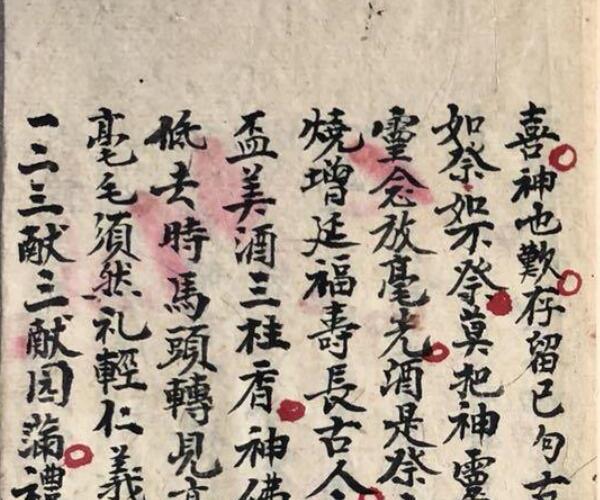 喜神也歡存留己句古
如祭如不祭莫把神靈
靈念放毫光酒是祭
燒增延福壽長古人
盃美酒三柱香神佛
低去時馬頭轉見高
毫毛須然礼輕仁義
一二三献三献园蒲禮